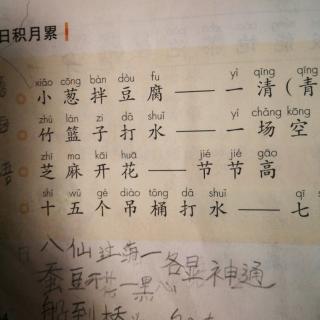 日积月累
xiǎo cōng bàn dòu fu yì qīng qīng
小葱拌豆腐——一清（青
zhú lán zi dǎ shuǐ yì chǎng kōng
竹篮子打水——一场空
zhī ma kāi huā jié jié gāo
芝麻开花——节节高
shí wǔ gè diào tǒng dǎ shuǐ qī
十五个吊桶打水——七
八仙过海一各显神通
蚕豆开花一黑心
船到桥